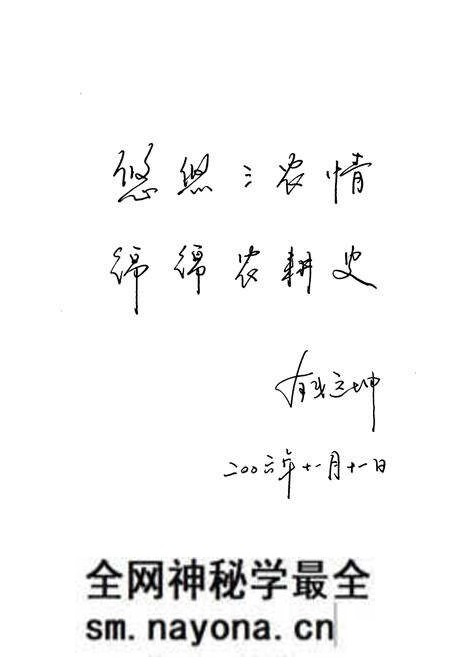 悠悠三农情
绵绵农耕史
二00六年十一月十一日
全网神秘学最全
sm.nayona.cn